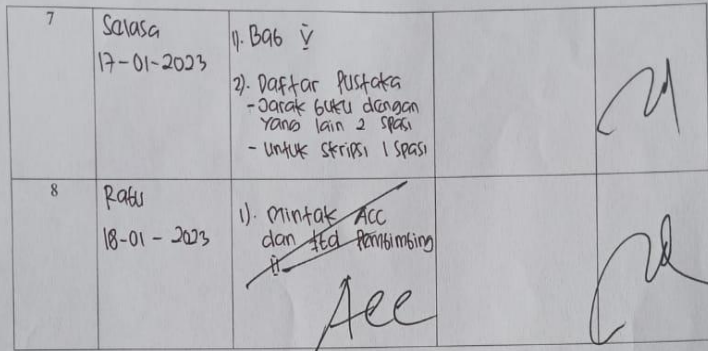 7
Selasa
17-01-2023
1). Bab V
2). Daftar Pustaka
- Jarak buku dengan
yang lain 2 spasi
- Untuk skripsi 1 spasi
8
Rabu
18-01-2023
1). Mintak ACC
dan ttd Pembimbing
II
Acc